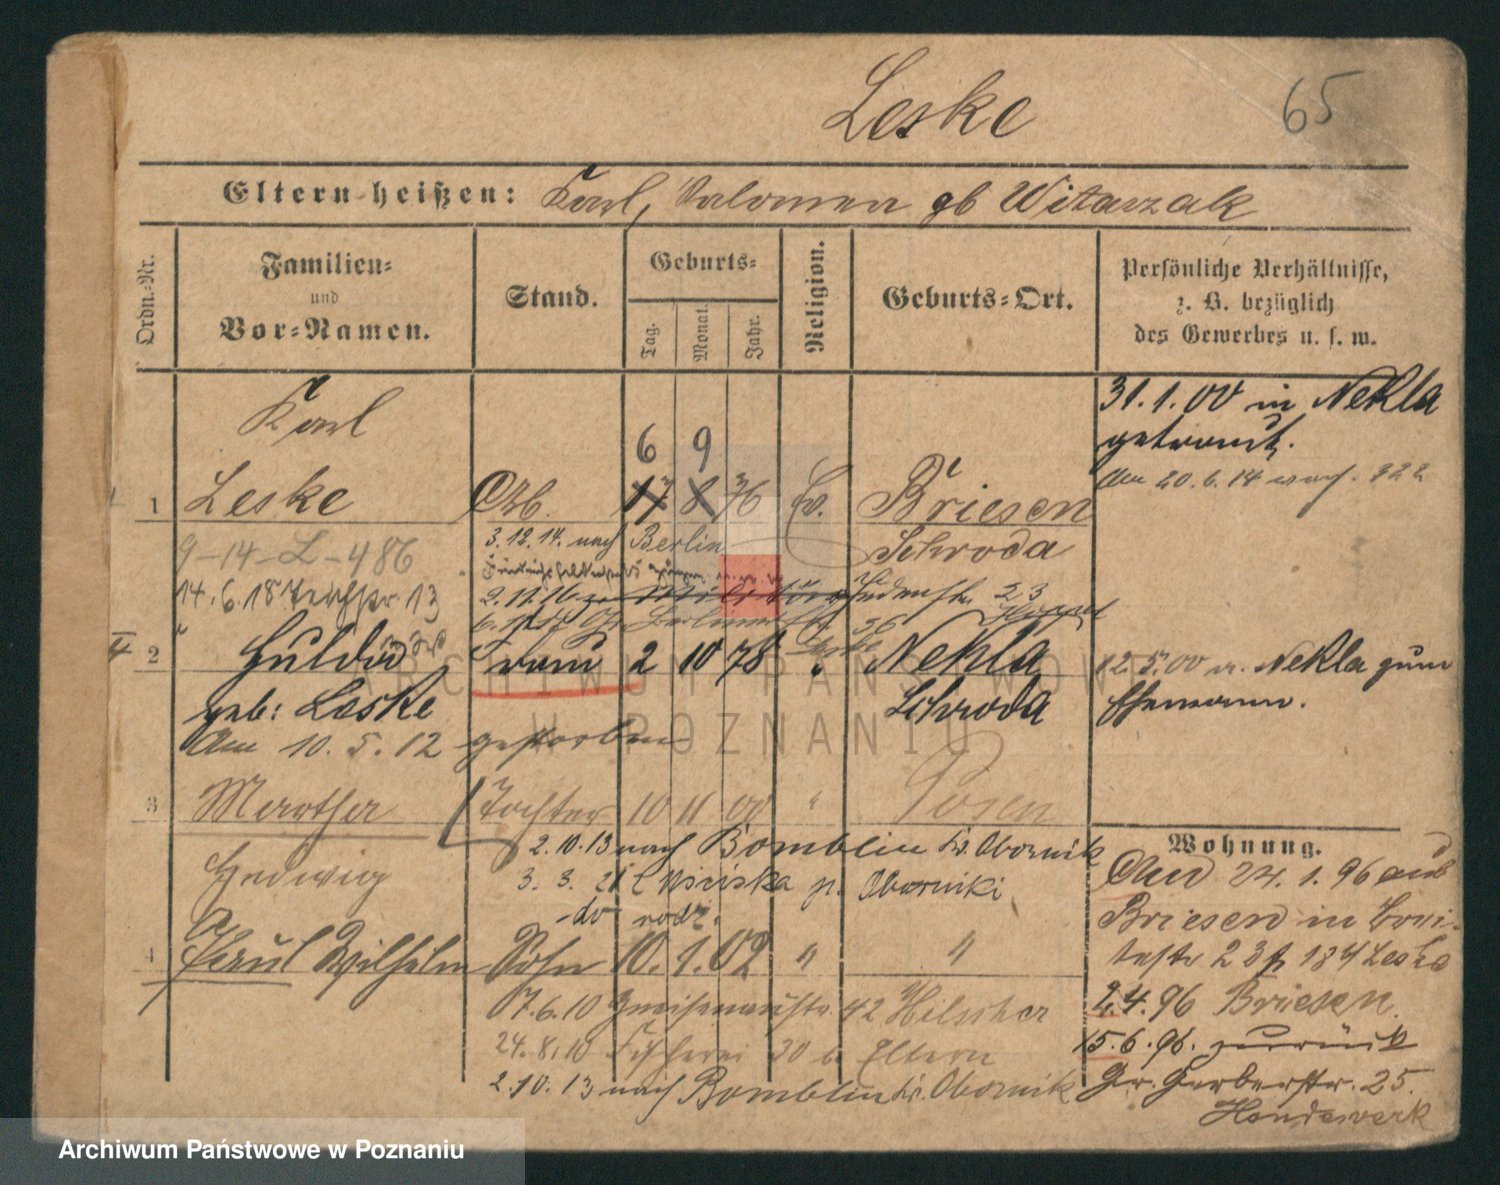 Leske
65
Eltern heißen: Karl, Salomea gb Witarzak
Ordn.-Nr.
Familien-
und
Vor-Namen.
Stand.
Geburts-
Tag.
Monat.
Jahr.
Religion.
Geburts-Ort.
Persönliche Verhältnisse,
z. B. bezüglich
des Gewerbes u. s. w.
Karl
6 9
31.1.00 in Nekla
getraut.
Am 20.6.14 nach. 922
1 Leske Arb. 17 8 76 Ev. Briesen
Schroda
9-14-L-486
3.12.14. nach Berlin
14.6.18 13
2.11.16. 23
2 Hulda Frau 2 10 78 " Nekla
Schroda
12.5.00 v. Nekla zum
Ehemann.
geb: Leske
Am 10.5.12 gestorben
3 Martha Tochter 10 11 00 " Posen
Hedwig
2.10.13 nach Bomblin Kr. Obornik
3.3.21 Uściska p. Oborniki
do rodz.
4 Paul Wilhelm Sohn 10.1.02 " "
17.6.10 Gneisenaustr 42 Hilscher
24.8.10 Fischerei 30 b. Eltern
2.10.13 nach Bomblin Kr. Obornik
Wohnung.
24.1.96 aus
Briesen in
23 b 184 Leske
2.4.96 Briesen.
15.6.96. zurück
Gr. Gerberstr. 25.
Handewerk
ARCHIWUM PAŃSTWOWE
W POZNANIU
Archiwum Państwowe w Poznaniu